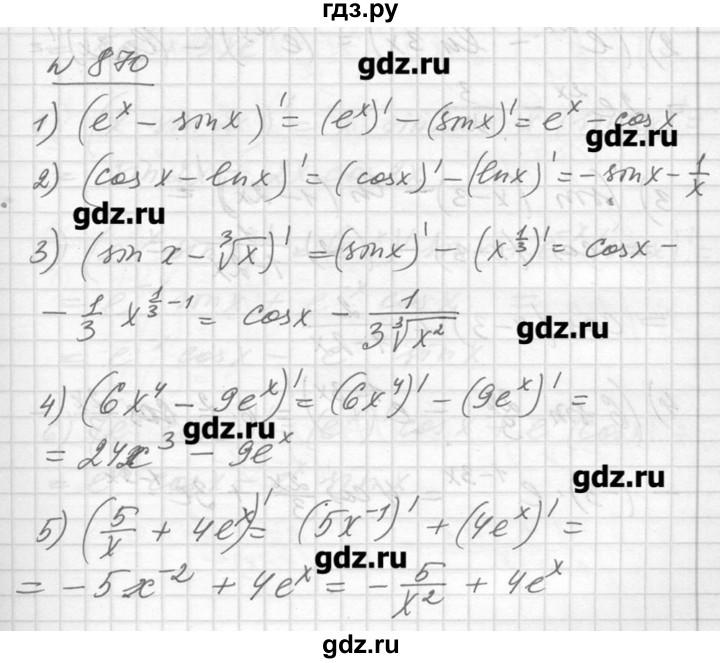 гдз.ру
№ 870
gdz.ru
1) (eˣ − sinx)′ = (eˣ)′ − (sinx)′ = eˣ − cosx
gdz.ru
2) (cosx − lnx)′ = (cosx)′ − (lnx)′ = − sinx − 1/x
gdz.ru
3) (sin x − ∛x)′ = (sinx)′ − (x^(1/3))′ = cosx −
− 1/3 x^(1/3 − 1) = cosx − 1/(3∛(x²))
gdz.ru
4) (6x⁴ − 9eˣ)′ = (6x⁴)′ − (9eˣ)′ =
gdz.ru
= 24x³ − 9eˣ
gdz.ru
5) (5/x + 4eˣ)′ = (5x⁻¹)′ + (4eˣ)′ =
gdz.ru
= − 5x⁻² + 4eˣ = − 5/x² + 4eˣ
gdz.ru